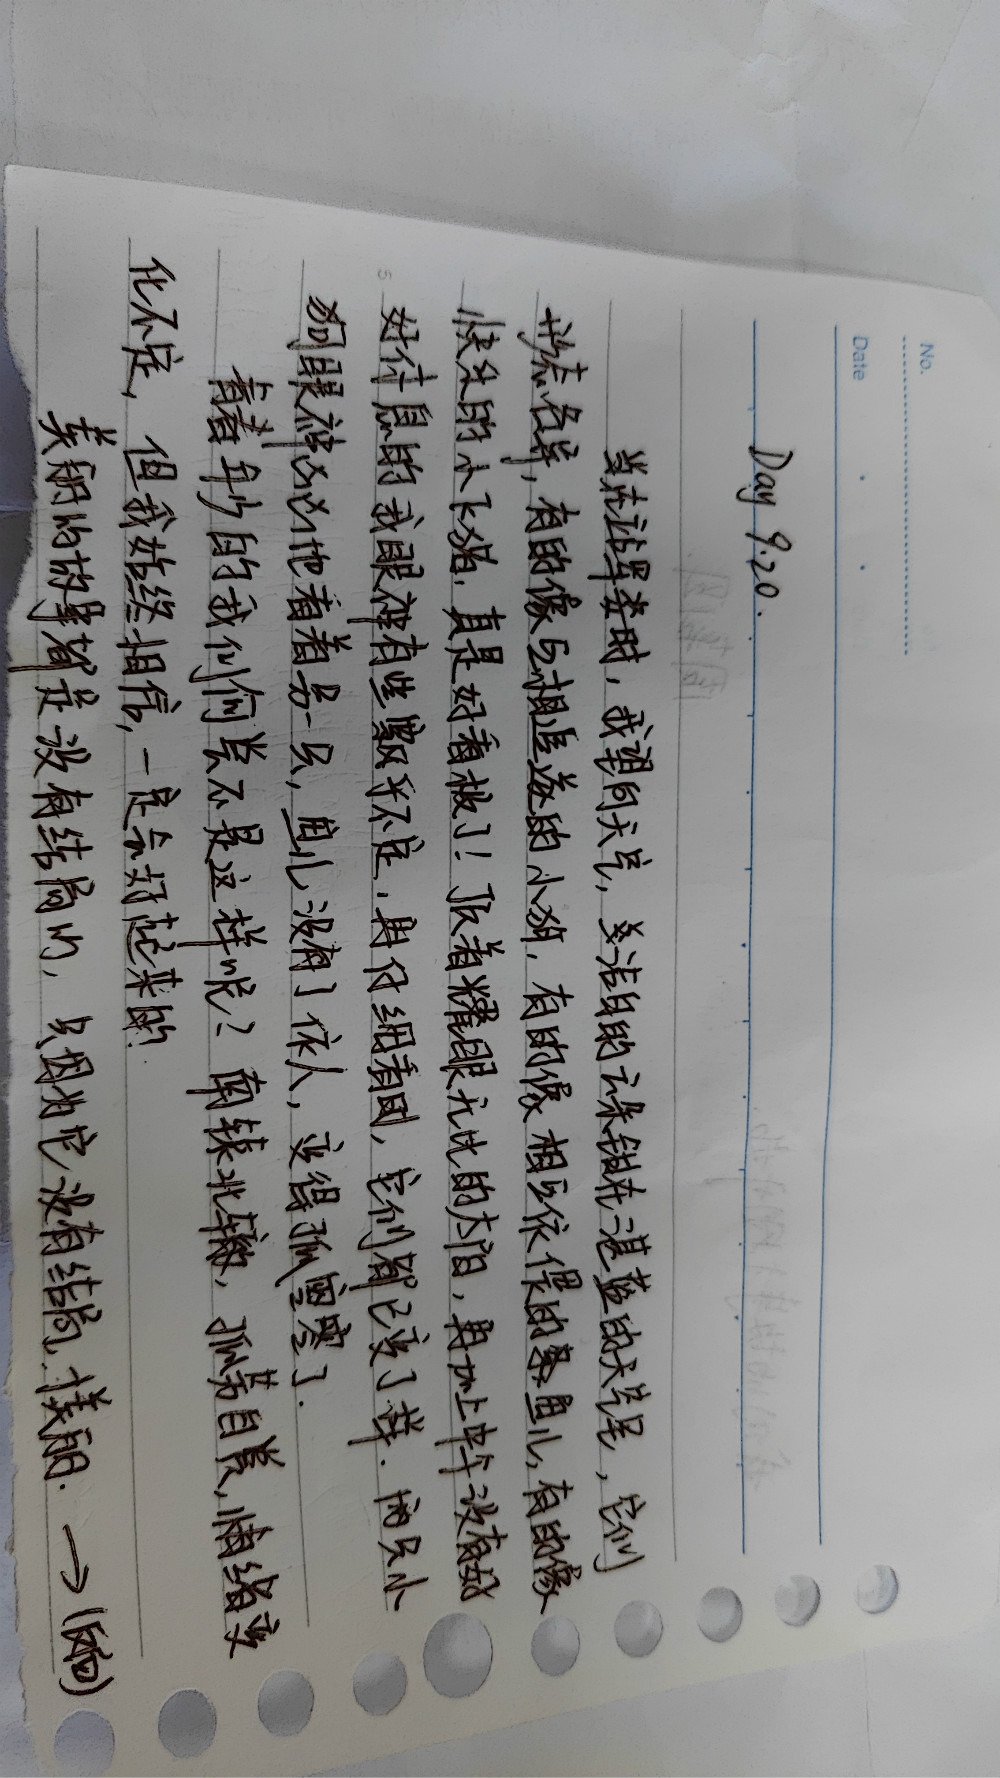 No.
Date
Day 9.20.
当在认罪券时，我望向天空，关洁白的云朵铺在湛蓝的天空里，它们
形态各异，有的像互相追逐的小狗，有的像相互依偎的黑鱼儿，有的像
快乐的小飞猪，真是好看极了！顶着耀眼无比的太阳，再加上中午没有好
好休息的我眼神有些飘乎不定，再仔细看时，它们都已变了样．两只小
狗眼神凶凶地看着另一只，鱼儿没有了依人，变得孤寞寒了．
青春年少的我们何尝不是这样呢？南辕北辙，孤芳自赏，情绪变
化不定，但我始终相信，一定会好起来的．
美丽的故事都是没有结局的，只因为它没有结局才美丽．→(反面)